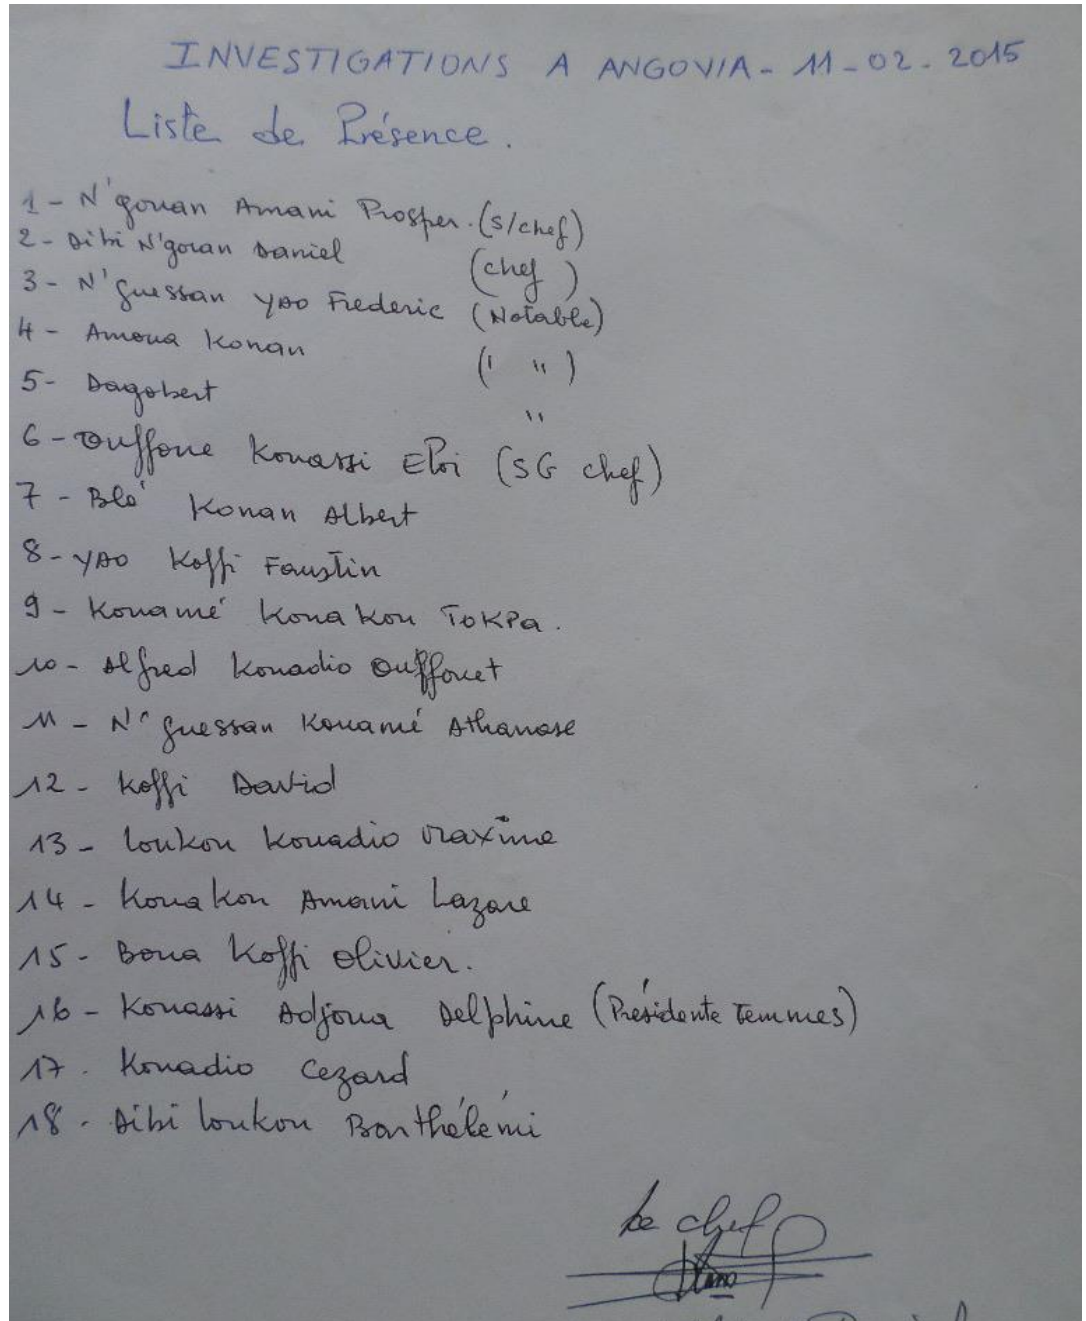 INVESTIGATIONS A ANGOVIA - 11-02-2015
Liste de Présence.
1 - N'gouan Amani Prosper. (s/chef)
2 - Dibi N'goran Daniel (chef)
3 - N'guessan YAO Frederic (Notable)
4 - Amoua Konan (' ")
5 - Dagobert "
6 - Ouffoue Kouassi Eloi (SG chef)
7 - Blé Konan Albert
8 - YAO Koffi Faustin
9 - Kouamé Konakou TOKPa.
10 - Alfred Kouadio Ouffouet
11 - N'guessan Kouamé Athanase
12 - Koffi David
13 - Loukou Kouadio Maxime
14 - Kouakou Amani Lazare
15 - Boua Koffi Olivier.
16 - Kouassi Adjoua Delphine (Présidente Femmes)
17 - Kouadio Cezard
18 - Dibi Loukou Barthélémi
Le chef